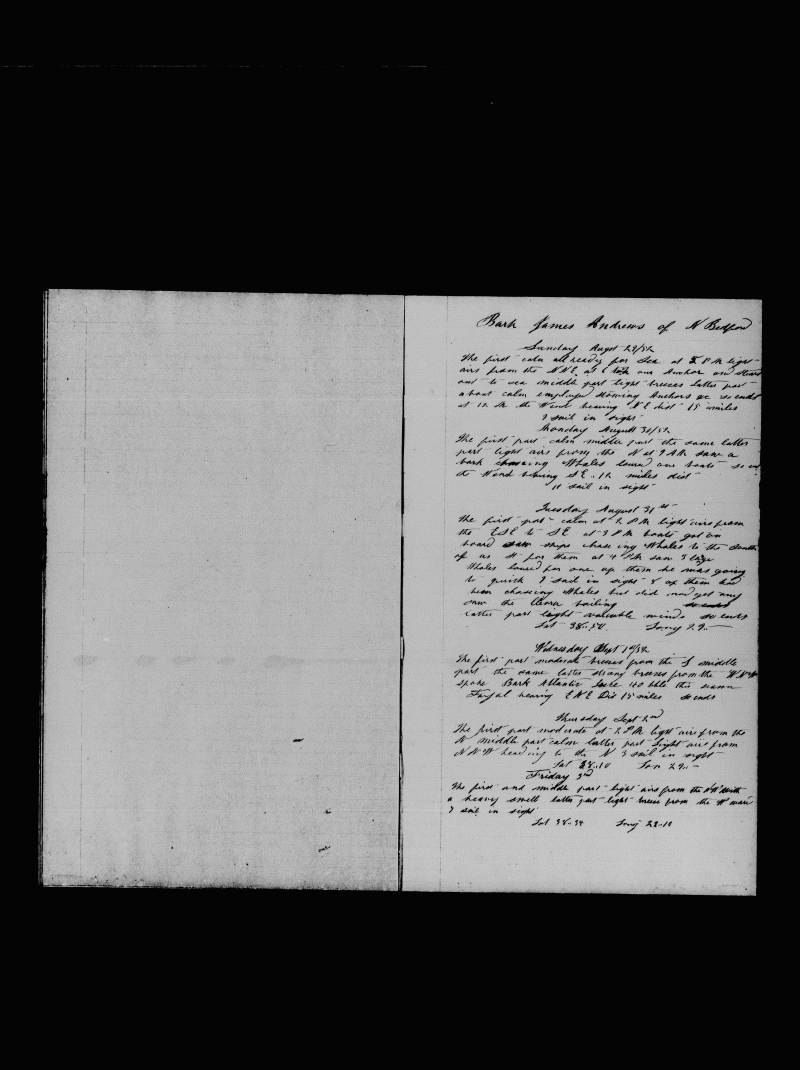 Bark James Andrews of N Bedford
Sunday Augst 29/52
The first calm all ready for Sea at 2 P M light
airs from the N N E at 6 took our Anchor and
out to sea middle part light breeses latter part
about calm employed stowing Anchors &c so ends
at 12 M the bearing N E dist 15 miles
7 sail in sight
Monday August 30/52
The first part calm middle part the same latter
part light airs from the N at 9 AM saw a
bark chaseing Whales lourd our boats so end
the bearing S E . 12 miles dist
11 sail in sight
Tuesday August 31 st
The first part calm at 2 P M light airs from
the E S E to S E at 3 P M boats got on
board saw ships chaseing Whales to the South
of us for them at 4 P M saw 3 large
Whales loured for one up them he was going
to quick 7 sail in sight & of them had
been chaseing Whales but did not get any
saw the boiling so ends
latter part light winds so ends
Lat 38..50. Long 29..
Wednesday Sept 1st/52
The first part moderate breeses from the S middle
part the same latter strong breeses from the W N W
Spoke Bark Atlantic 140 bbls this season
Fayal bearing E N E Dis 15 miles so ends
Thursday Sept 2nd
The first part moderate at 2 P M light airs from the
N middle part calm latter part Light airs from
N N W heading to the N 3 sail in sight
Lat 38..10 Lon 29..
Friday 3rd
The first and middle part light airs from the N W with
a heavy swell latter part light breese from the W
7 sail in sight
Lat 38..34 Long 28..10